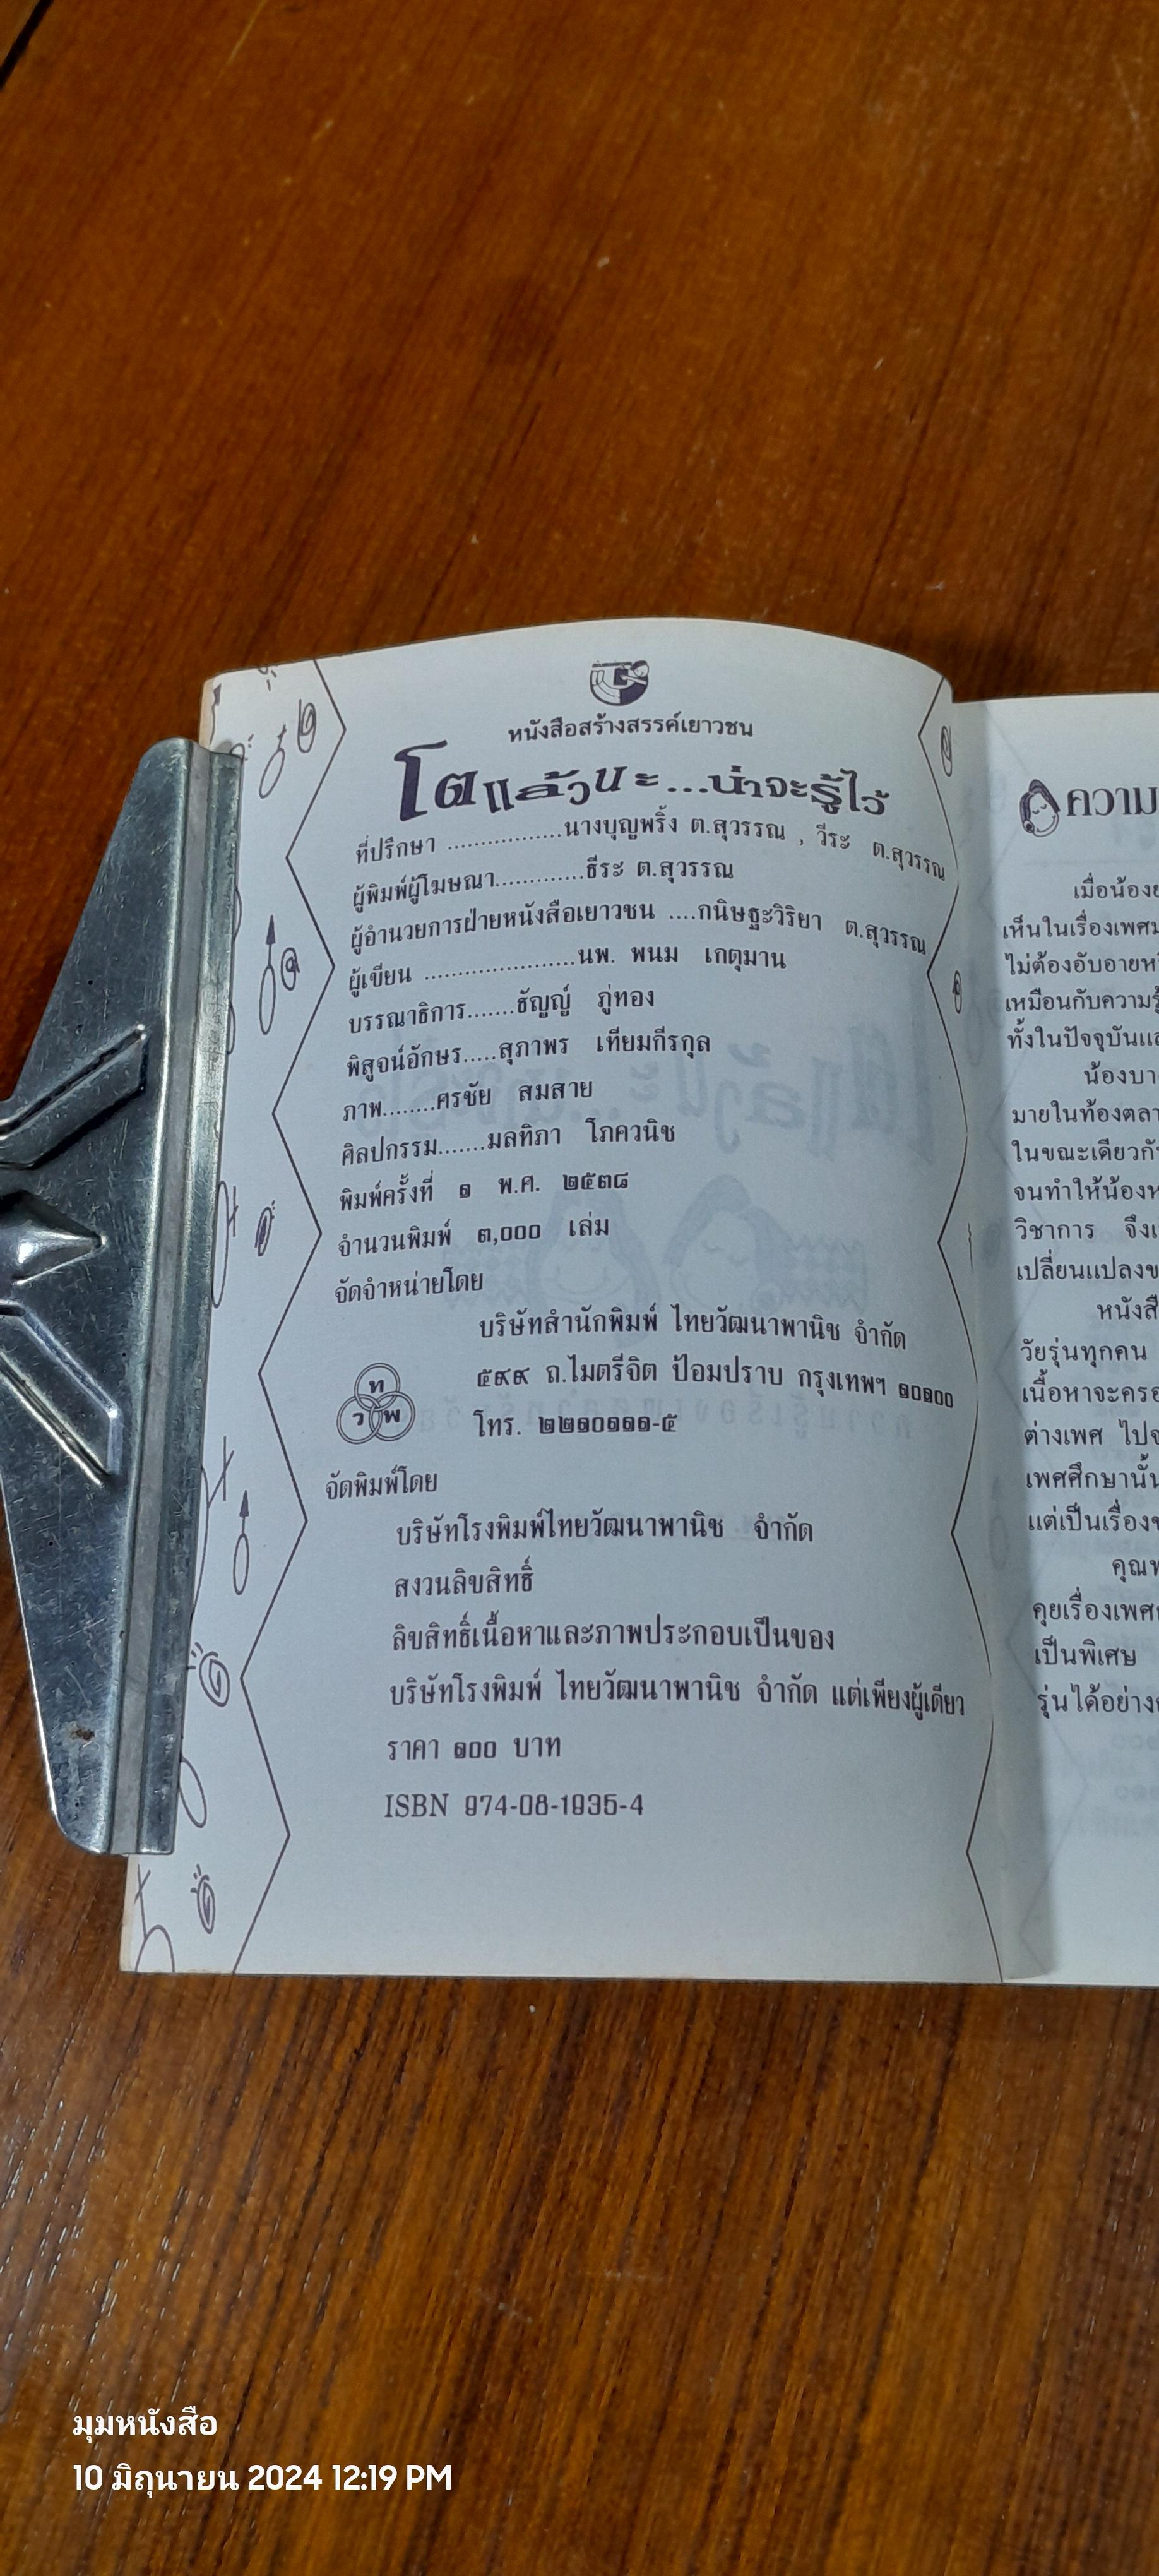 หนังสือสร้างสรรค์เยาวชน
โตแล้วนะ...น่าจะรู้ไว้
ที่ปรึกษา .................นางบุญพริ้ง ต.สุวรรณ , วีระ ต.สุวรรณ
ผู้พิมพ์ผู้โฆษณา.............ธีระ ต.สุวรรณ
ผู้อำนวยการฝ่ายหนังสือเยาวชน ....กนิษฐะวิริยา ต.สุวรรณ
ผู้เขียน ......................นพ. พนม เกตุมาน
บรรณาธิการ.......ธัญญ์ ภู่ทอง
พิสูจน์อักษร.....สุภาพร เทียมกีรกุล
ภาพ........ศรชัย สมสาย
ศิลปกรรม.......มลทิภา โภควนิช
พิมพ์ครั้งที่ ๑ พ.ศ. ๒๕๓๘
จำนวนพิมพ์ ๓,๐๐๐ เล่ม
จัดจำหน่ายโดย
บริษัทสำนักพิมพ์ ไทยวัฒนาพานิช จำกัด
๕๙๙ ถ.ไมตรีจิต ป้อมปราบ กรุงเทพฯ ๑๐๑๐๐
โทร. ๒๒๑๐๑๑๑-๕
ท
ว พ
จัดพิมพ์โดย
บริษัทโรงพิมพ์ไทยวัฒนาพานิช จำกัด
สงวนลิขสิทธิ์
ลิขสิทธิ์เนื้อหาและภาพประกอบเป็นของ
บริษัทโรงพิมพ์ ไทยวัฒนาพานิช จำกัด แต่เพียงผู้เดียว
ราคา ๑๐๐ บาท
ISBN 974-08-1935-4
ความ
เมื่อน้อง
เห็นในเรื่องเพศ
ไม่ต้องอับอาย
เหมือนกับความรู้
ทั้งในปัจจุบันแล
น้องบา
มายในท้องตลา
ในขณะเดียวกั
จนทำให้น้อง
วิชาการ จึง
เปลี่ยนแปลง
หนังสื
วัยรุ่นทุกคน
เนื้อหาจะครอ
ต่างเพศ ไป
เพศศึกษานั้น
แต่เป็นเรื่อง
คุณ
คุยเรื่องเพศ
เป็นพิเศษ
รุ่นได้อย่าง
มุมหนังสือ
10 มิถุนายน 2024 12:19 PM